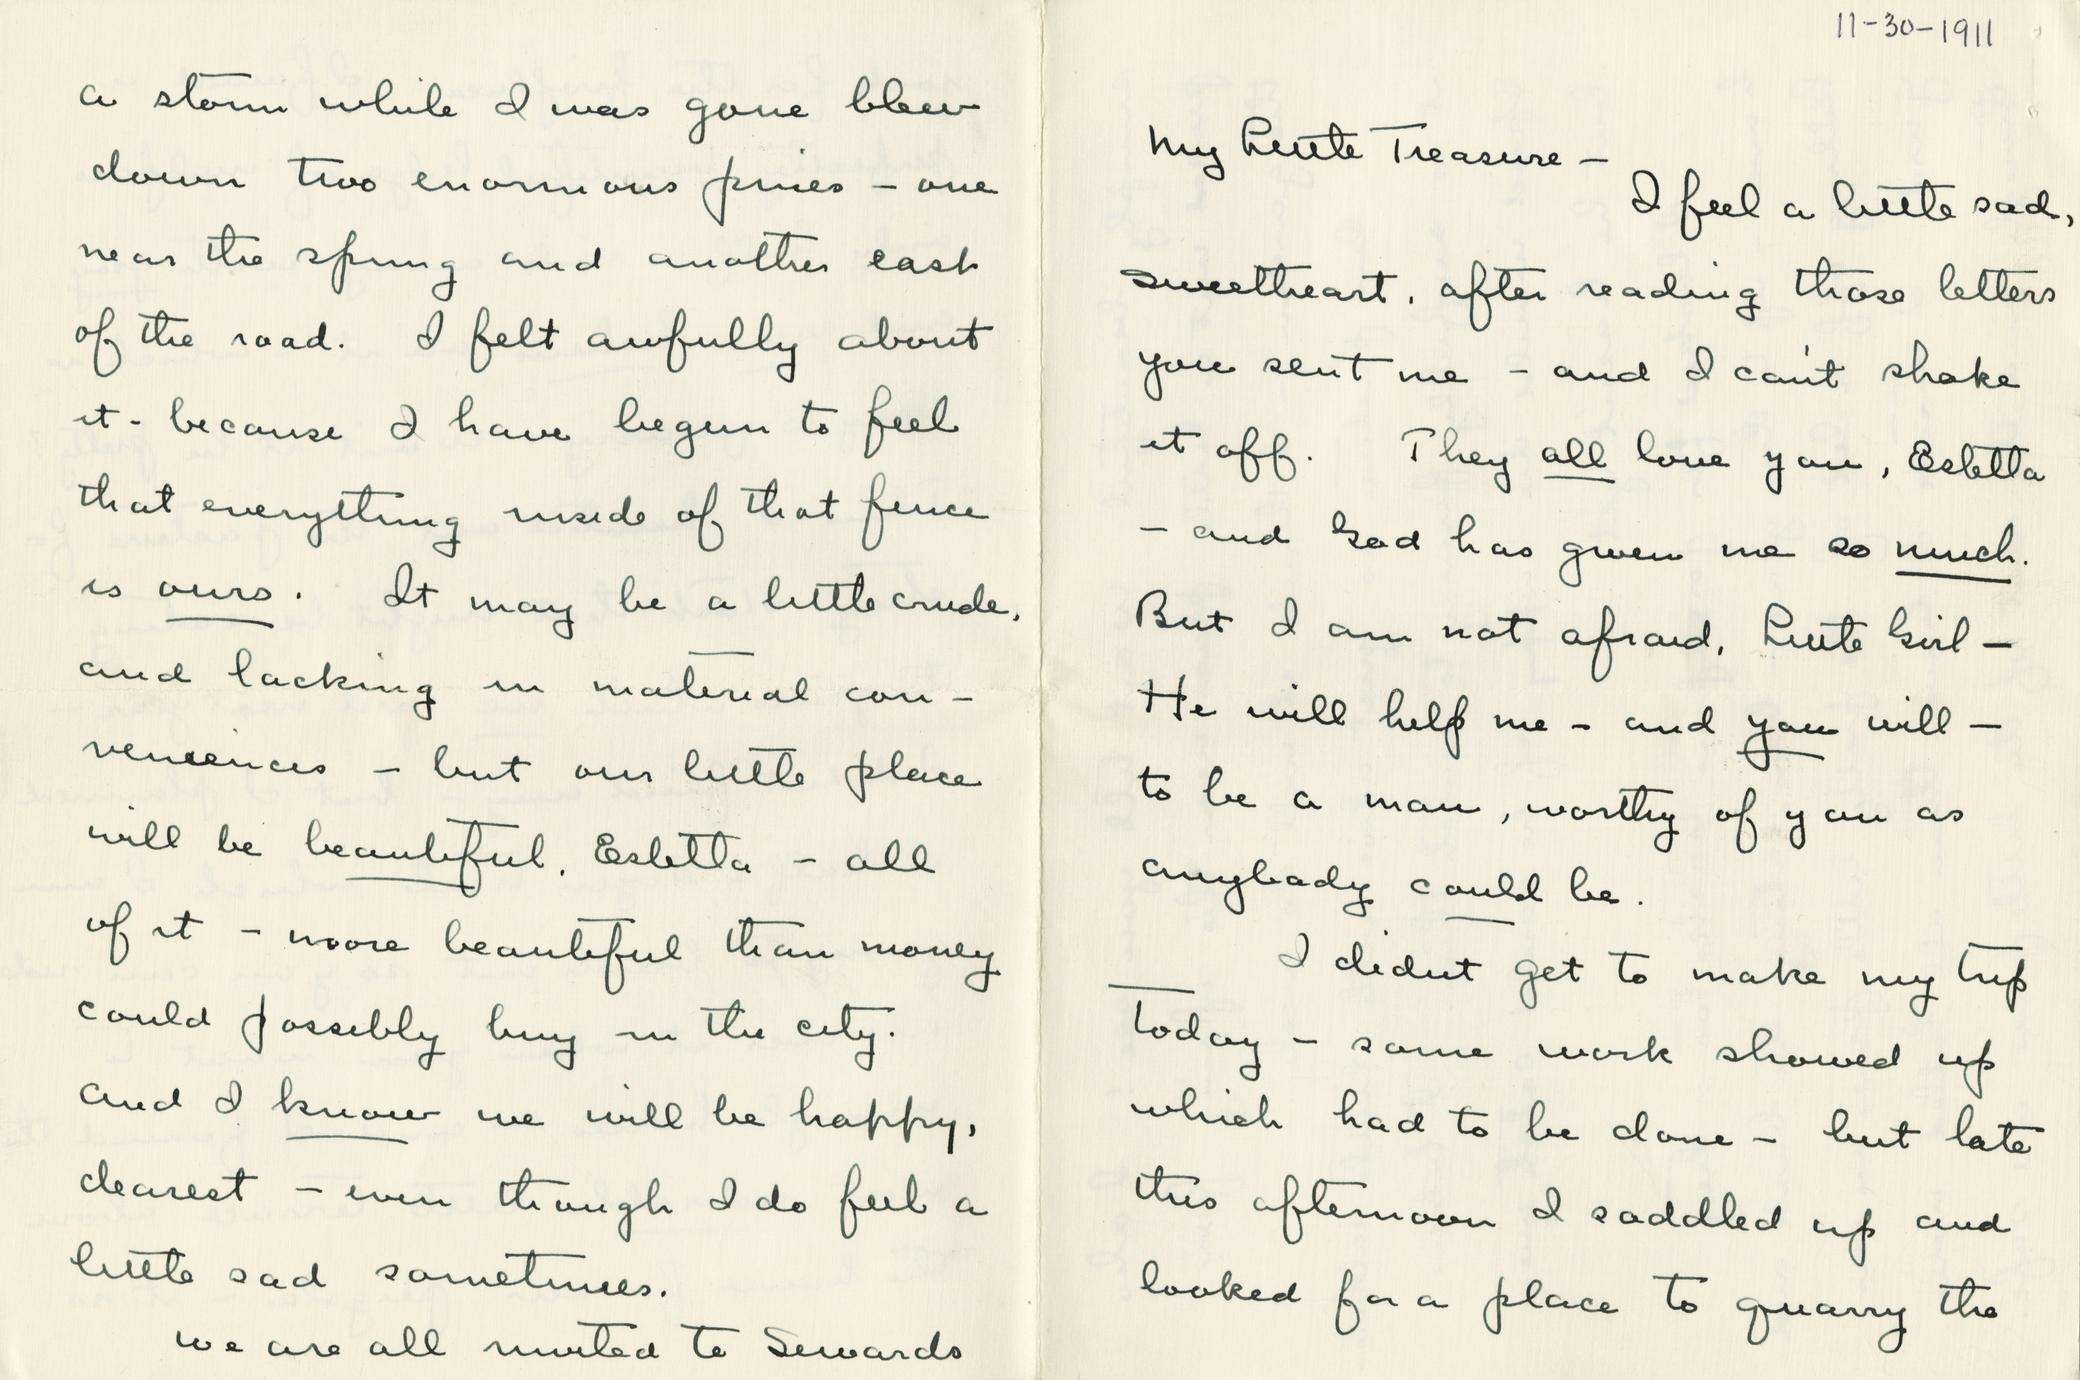 11-30-1911
My Little Treasure —
I feel a little sad,
sweetheart, after reading those letters
you sent me – and I can't shake
it off. They all love you, Estella
– and God has given me so much.
But I am not afraid, Little Girl –
He will help me – and you will –
to be a man, worthy of you as
anybody could be.
I didn't get to make my trip
today – some work showed up
which had to be done – but late
this afternoon I saddled up and
looked for a place to quarry the
a storm while I was gone blew
down two enormous pines – one
near the spring and another east
of the road. I felt awfully about
it – because I have begun to feel
that everything inside of that fence
is ours. It may be a little crude,
and lacking in material con-
veniences – but our little place
will be beautiful, Estella – all
of it – more beautiful than money
could possibly buy in the city.
and I know we will be happy,
dearest – even though I do feel a
little sad sometimes.
We are all invited to Sewards